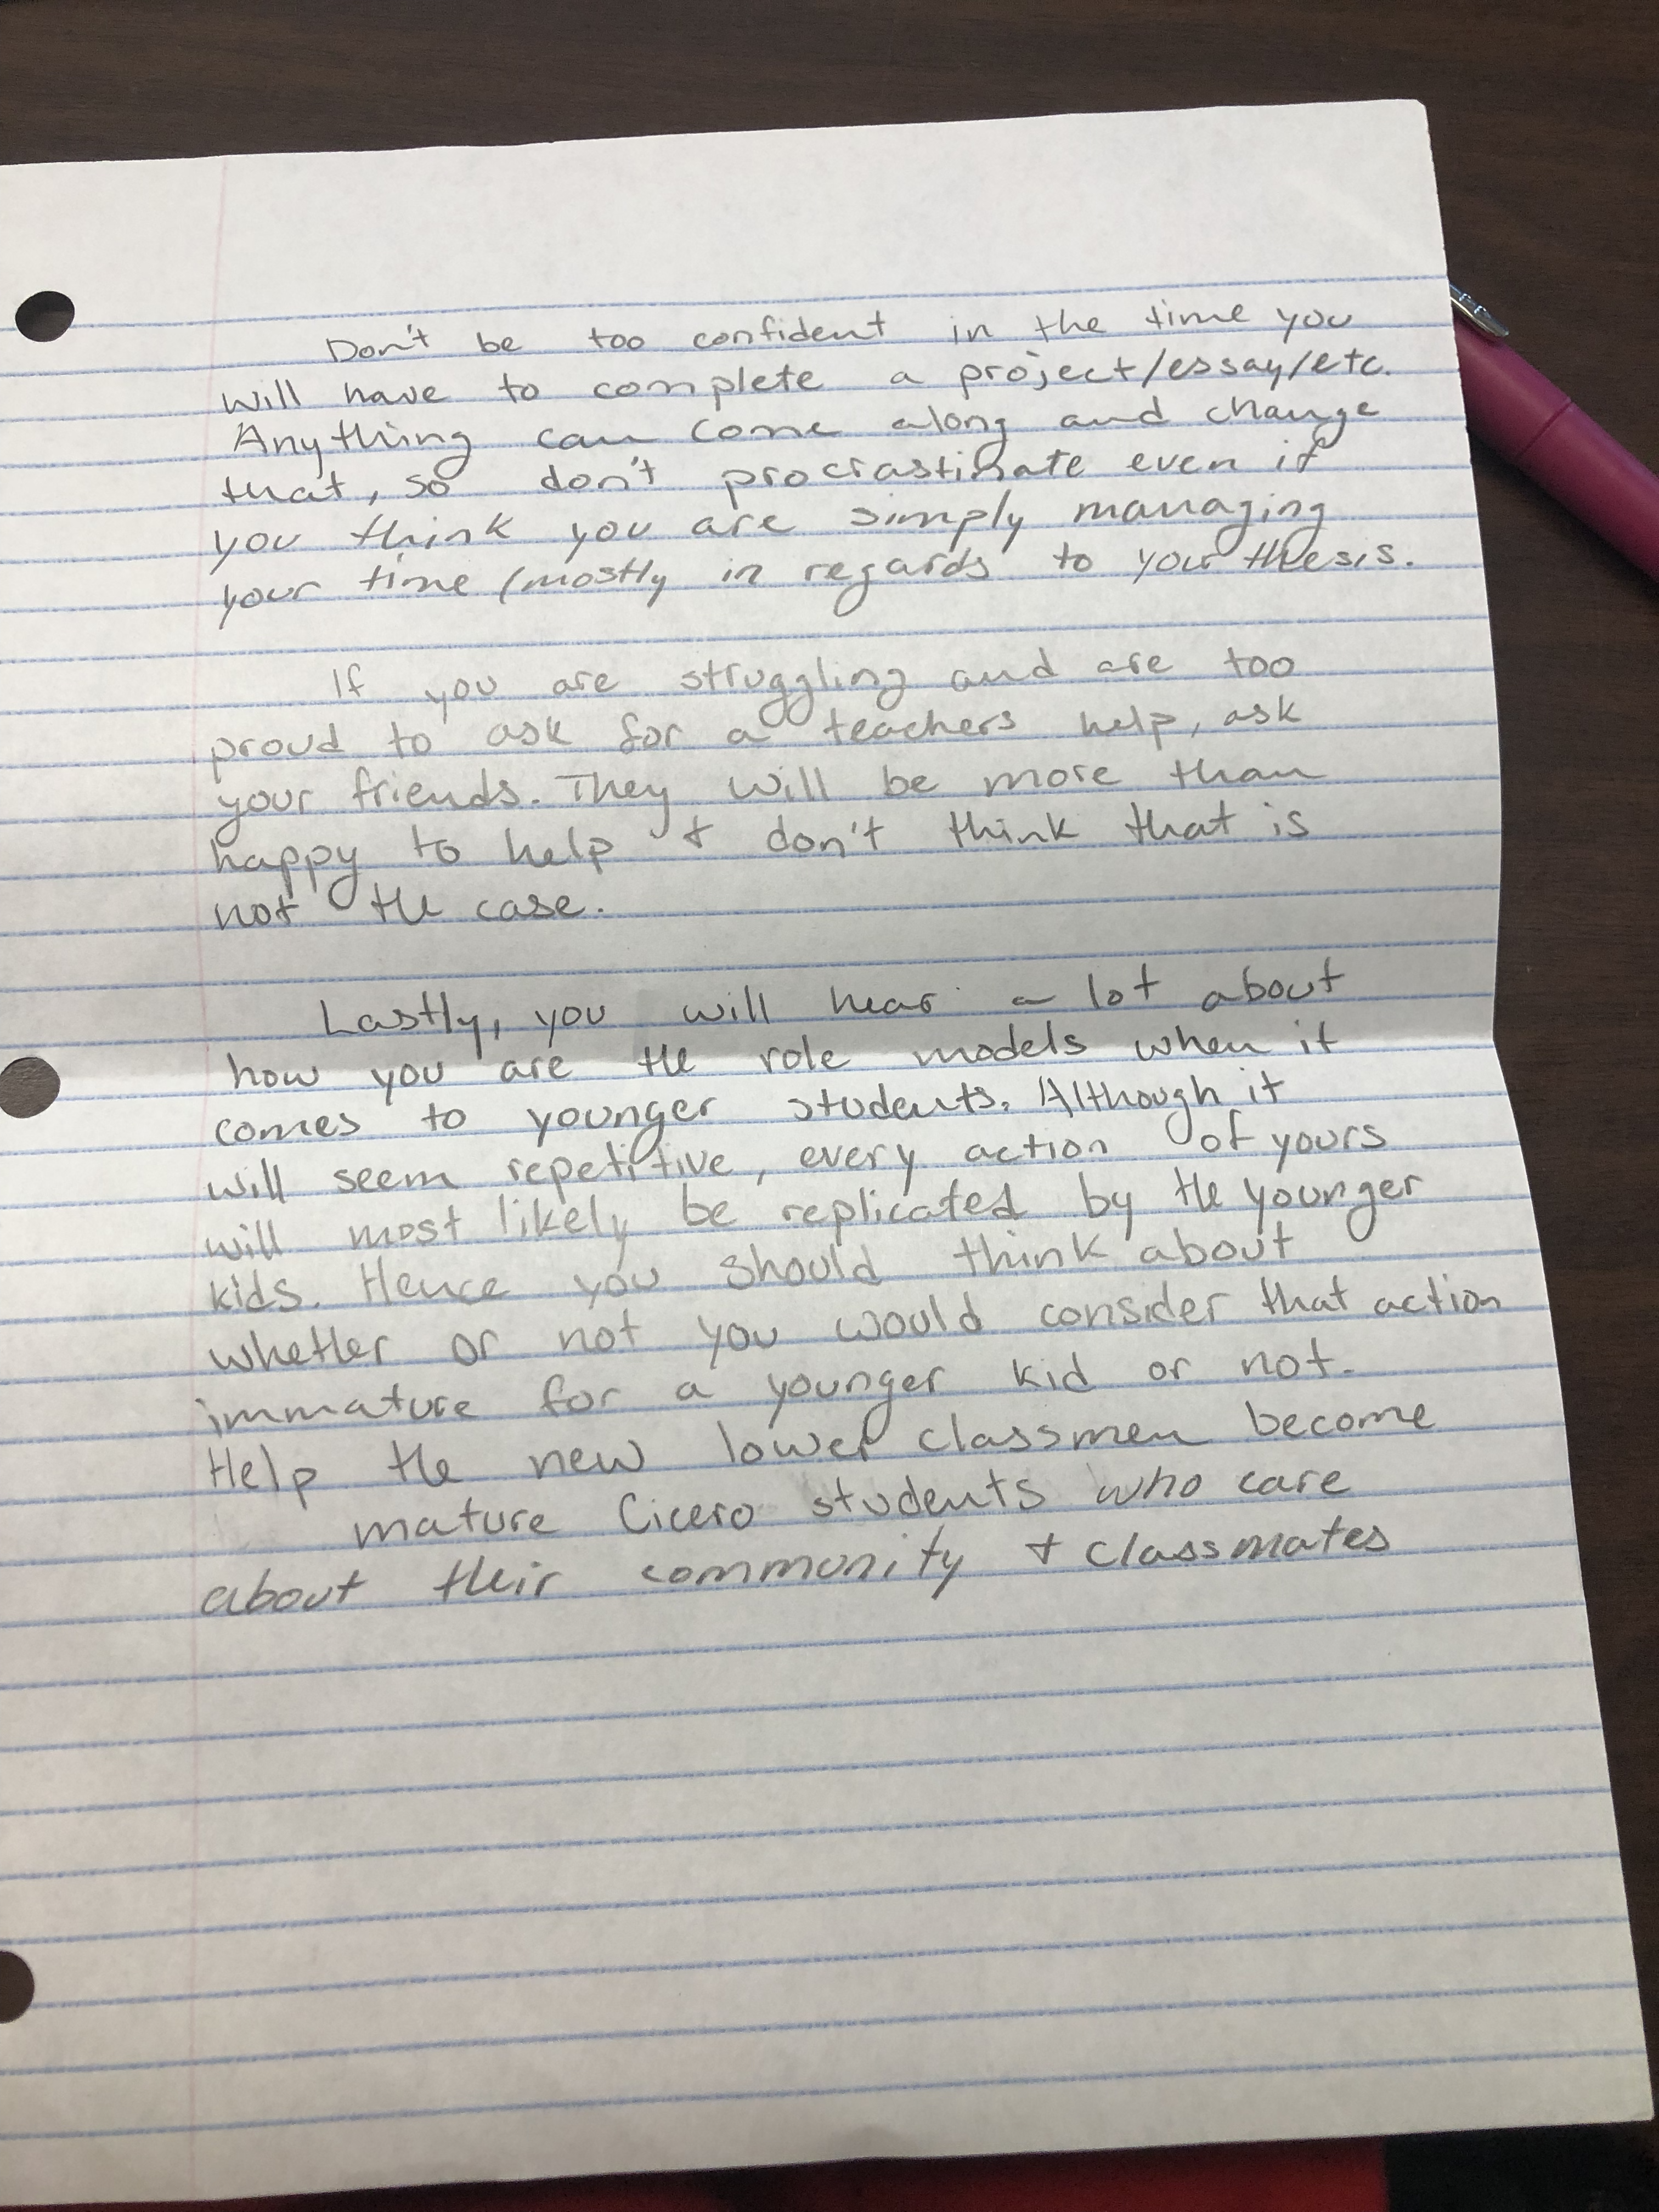 Don't be too confident in the time you
will have to complete a project/essay/etc.
Anything can come along and change
that, so don't procrastinate even if
you think you are simply managing
your time (mostly in regards to your thesis.
If you are struggling and are too
proud to ask for a teachers help, ask
your friends. They will be more than
happy to help + don't think that is
not the case.
Lastly, you will hear a lot about
how you are the role models when it
comes to younger students. Although it
will seem repetitive, every action of yours
will most likely be replicated by the younger
kids. Hence you should think about
whether or not you would consider that action
immature for a younger kid or not.
Help the new lower classmen become
mature Cicero students who care
about their community + classmates